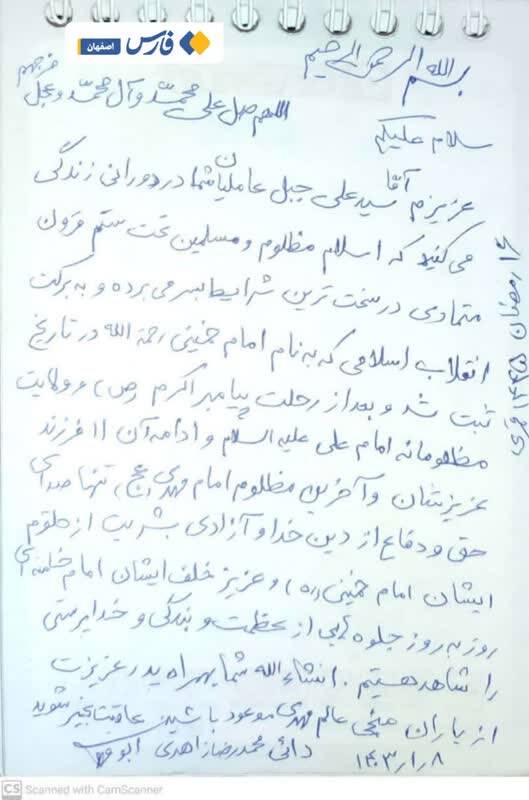 فارس
اصفهان
بسم الله الرحمن الرحیم
اللهم صل علی محمد وآل محمد وعجل فرجهم
سلام علیکم
عزیزم آقا سید علی جبل عاملیان شما در دورانی زندگی
می کنید که اسلام مظلوم و مسلمین تحت ستم قرون
متمادی در سخت ترین شرایط بسر می برده و به برکت
انقلاب اسلامی که به نام امام خمینی رحمة الله در تاریخ
ثبت شد و بعد از رحلت پیامبر اکرم (ص) و ولایت
مظلومانه امام علی علیه السلام و ادامه آن ۱۱ فرزند
عزیزشان و آخرین مظلوم امام مهدی (عج) تنها صدای
حق و دفاع از دین خدا و آزادی بشریت از حلقوم
ایشان امام خمینی (ره) و عزیز خلف ایشان امام خامنه ای
روز به روز جلوه هایی از عظمت و بندگی و خداپرستی
را شاهد هستیم . انشاءالله شما بهمراه پدر عزیزت
از یاران منجی عالم مهدی موعود باشید عاقبت بخیر شوید
دائی محمدرضا زاهدی
۱۴۰۳/۱/۸
۱۶ رمضان ۱۴۴۵ قمری
CS Scanned with CamScanner